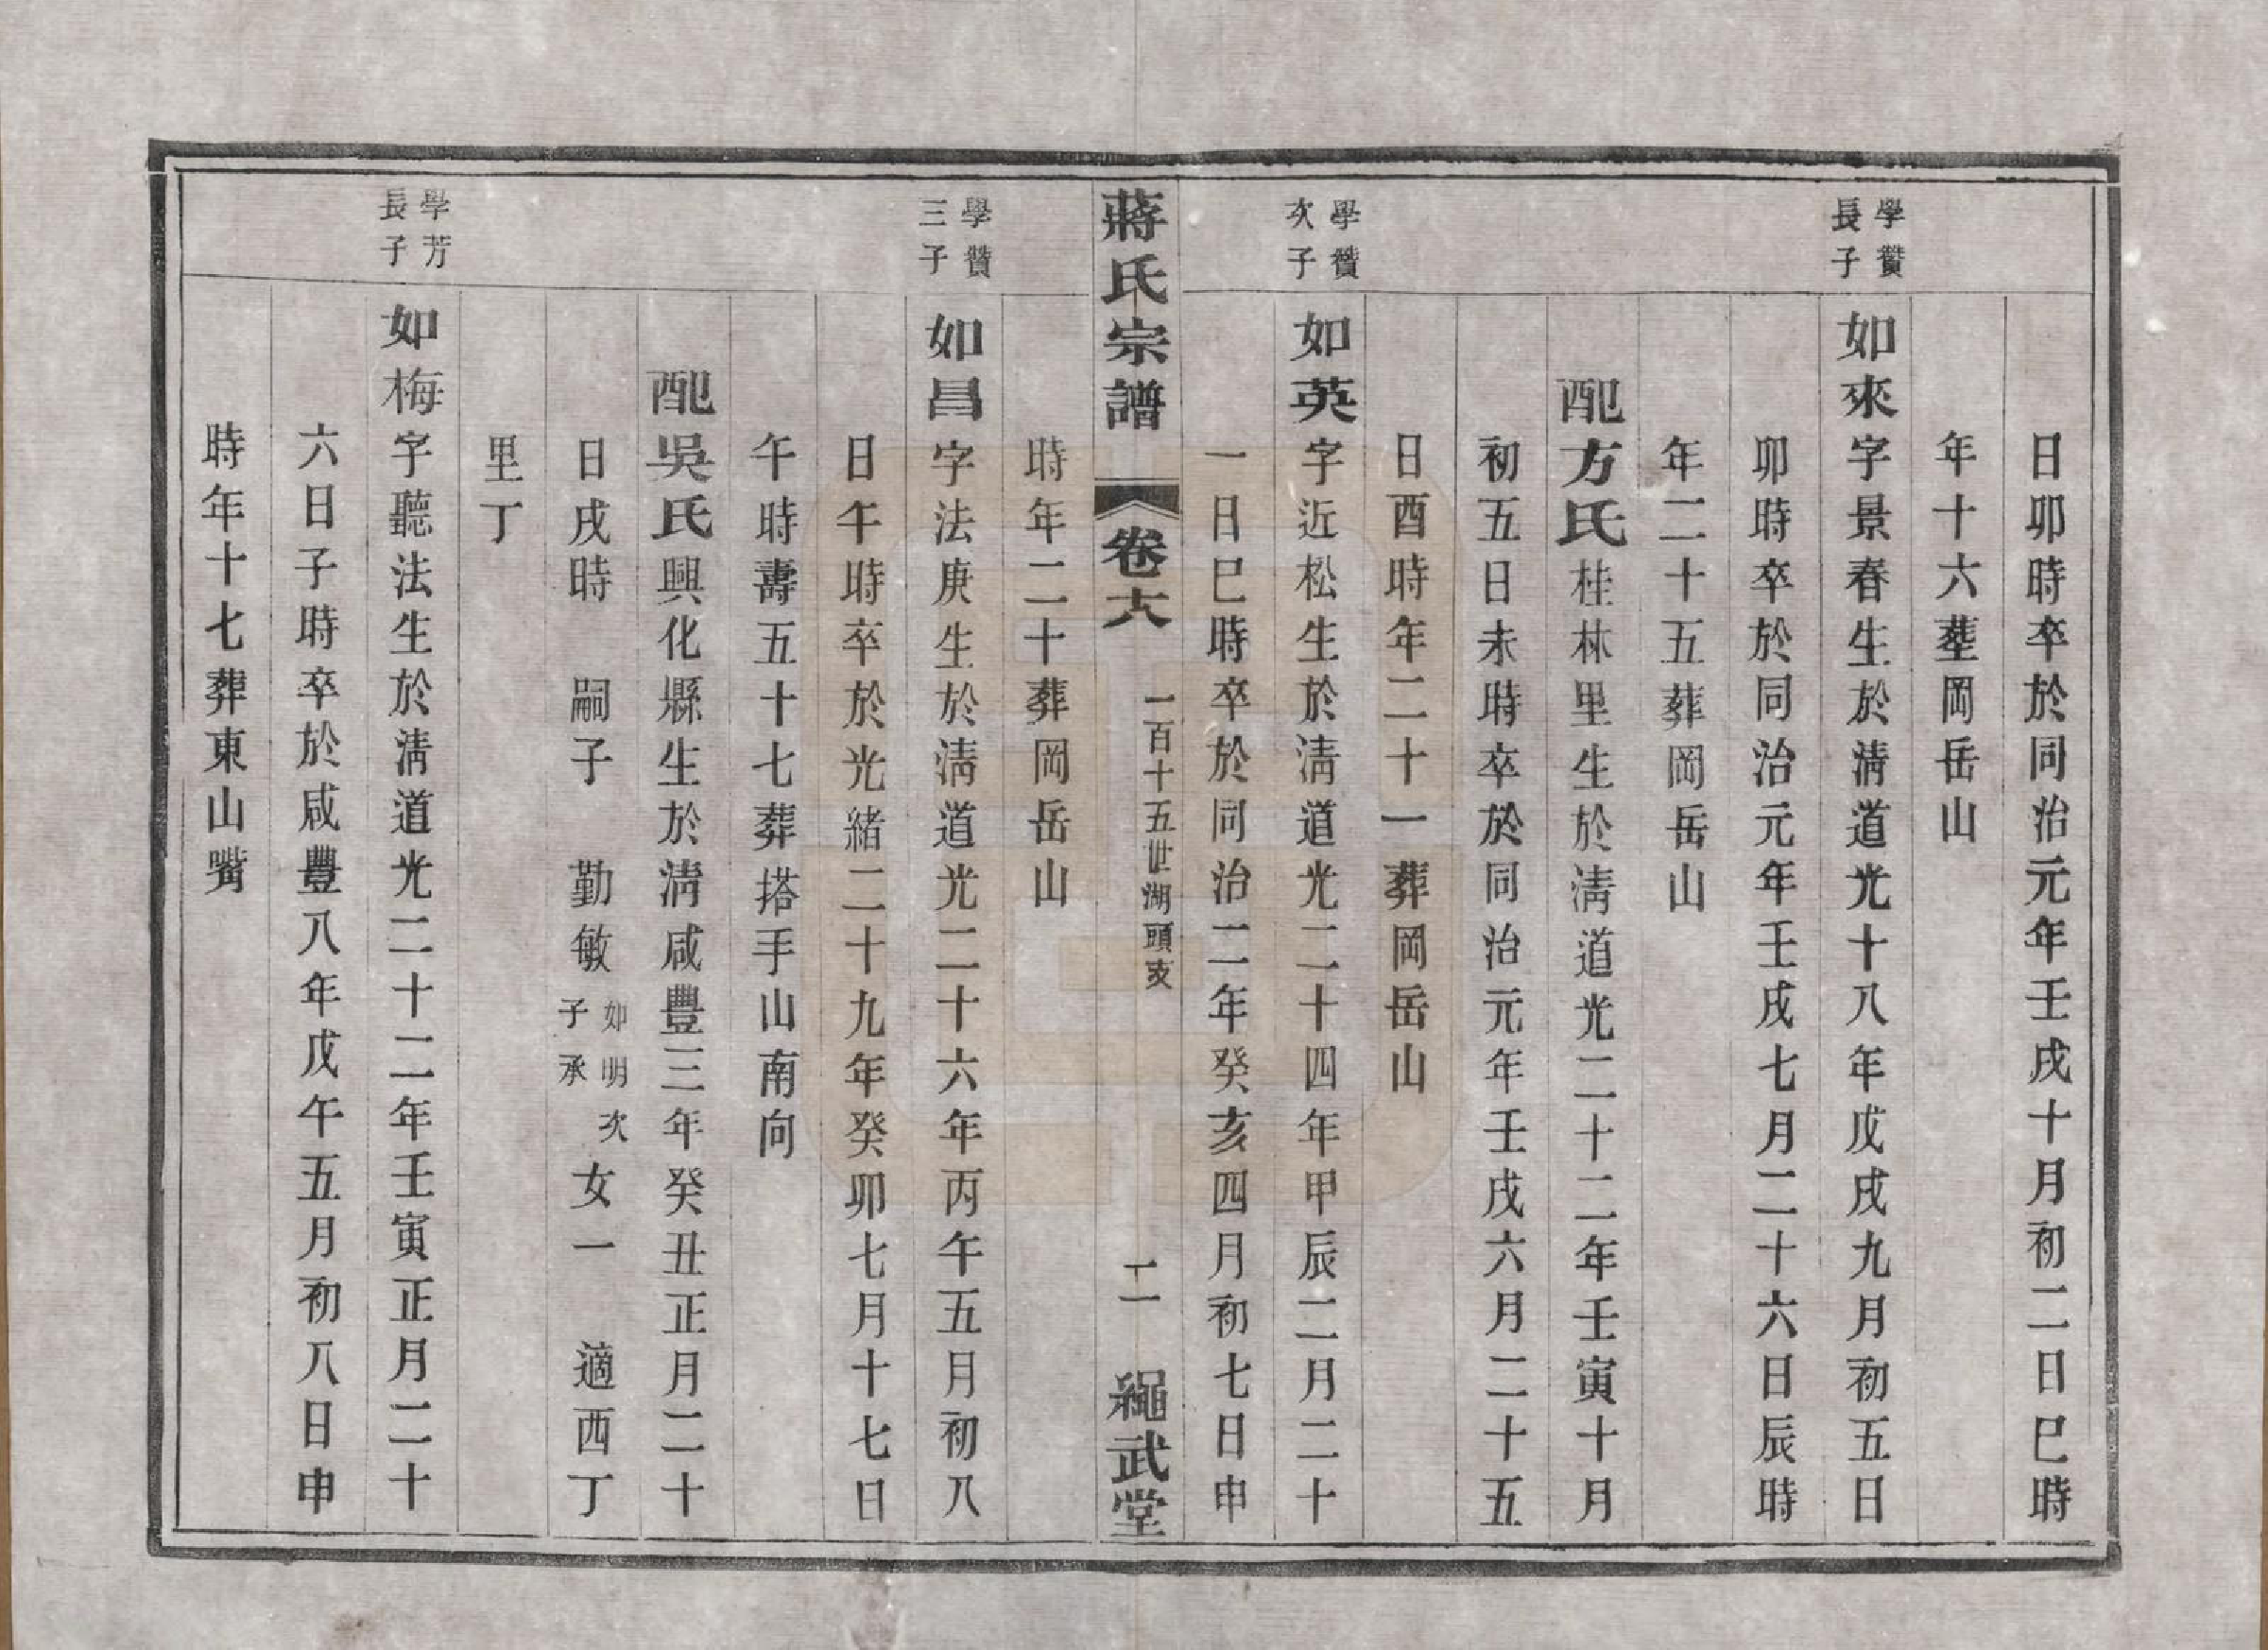 日卯時卒於同治元年壬戌十月初二日巳時
年十六塟岡岳山
學贊長子
如來字景春生於淸道光十八年戊戌九月初五日
卯時卒於同治元年壬戌七月二十六日辰時
年二十五葬岡岳山
配方氏桂林里生於淸道光二十二年壬寅十月
初五日未時卒於同治元年壬戌六月二十五
日酉時年二十一葬岡岳山
學贊次子
如英字近松生於淸道光二十四年甲辰二月二十
一日巳時卒於同治二年癸亥四月初七日申
蔣氏宗譜 卷六 一百十五世湖頭 二 繩武堂
時年二十葬岡岳山
學贊三子
如昌字法庚生於淸道光二十六年丙午五月初八
日午時卒於光緒二十九年癸卯七月十七日
午時壽五十七葬搭手山南向
配吳氏興化縣生於淸咸豐三年癸丑正月二十
日戌時 嗣子 勤敏如明次子承 女一 適西丁
里丁
學芳長子
如梅字聽法生於淸道光二十二年壬寅正月二十
六日子時卒於咸豐八年戊午五月初八日申
時年十七葬東山嘴